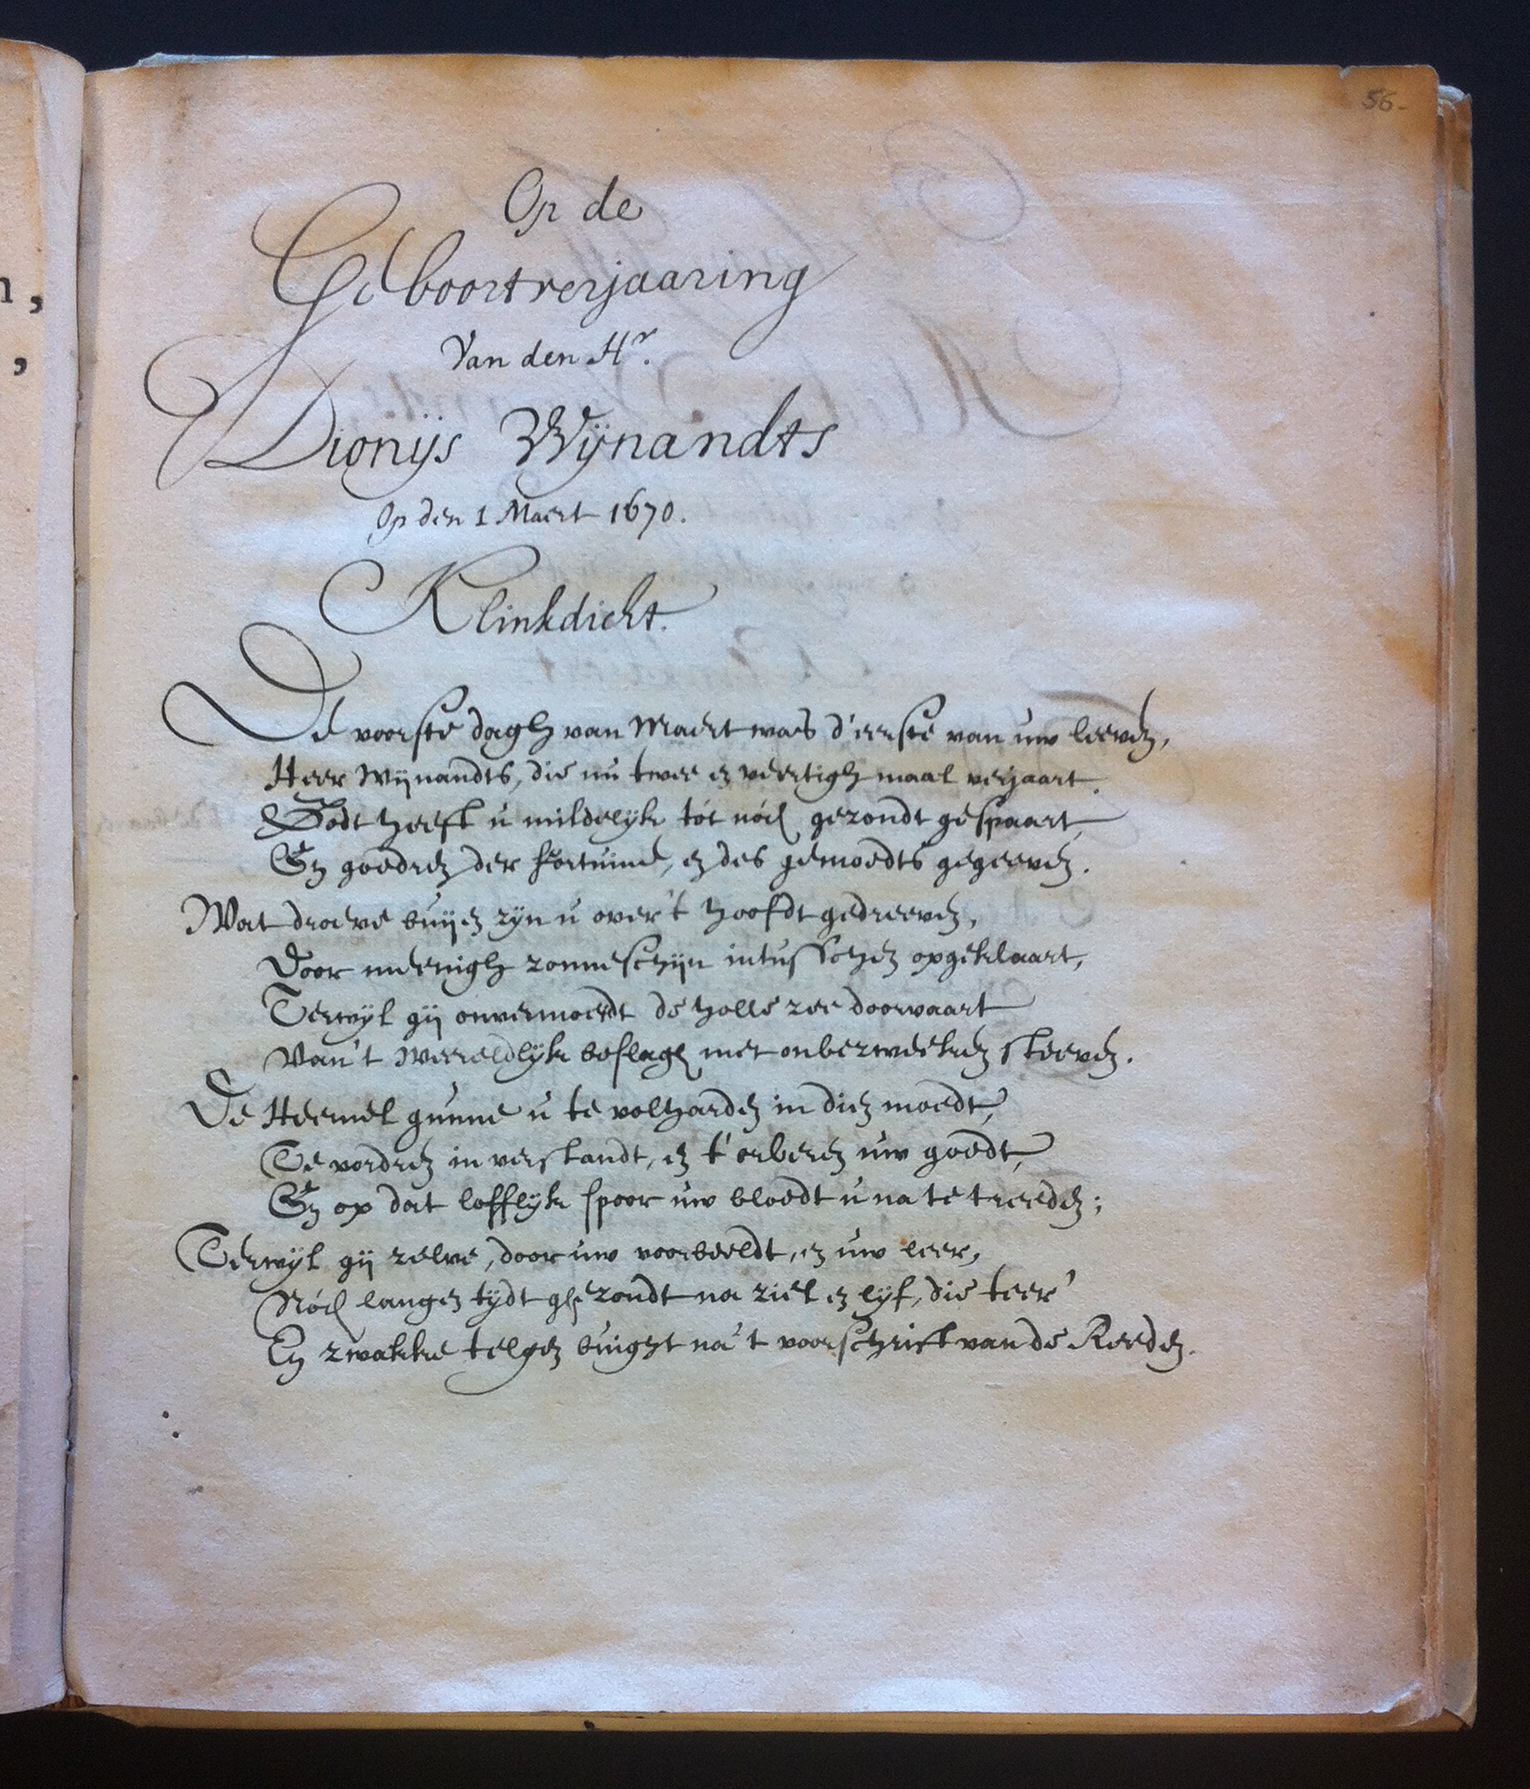 56.
n,
,
Op de
Geboortverjaaring
Van den Hr.
Dionijs Wijnandts
Op den 1 Maert 1670.
Klinkdicht.
De voorste dagh van Maert was d'eerste van uw leeven,
Heer Wijnandts, die nu twee en veertigh maal verjaart.
Godt heeft u mildelijk tót nóch gezondt gespaart,
En goedren der fortuine, en des gemoedts gegeeven.
Wat droeve buijen zijn u over't hoofdt gedreeven,
Door meenigh zonneschijn intusschen opgeklaart,
Terwijl gij onvermoeidt de holle zee doorvaart
Van't weereldlijk beslagh met onbezweeken steeven.
De Heemel gunne u te volharden in dien moedt,
Te vordren in verstandt, en t'orberen uw goedt,
En op dat lofflijk spoor uw bloedt u na te treeden;
Terwijl gij zelve, door uw voorbeeldt, en uw leer,
Nóch langen tijdt ghezondt na ziel en lijf, die teer'
En zwakke telgen buight na't voorschrift van de Reeden.